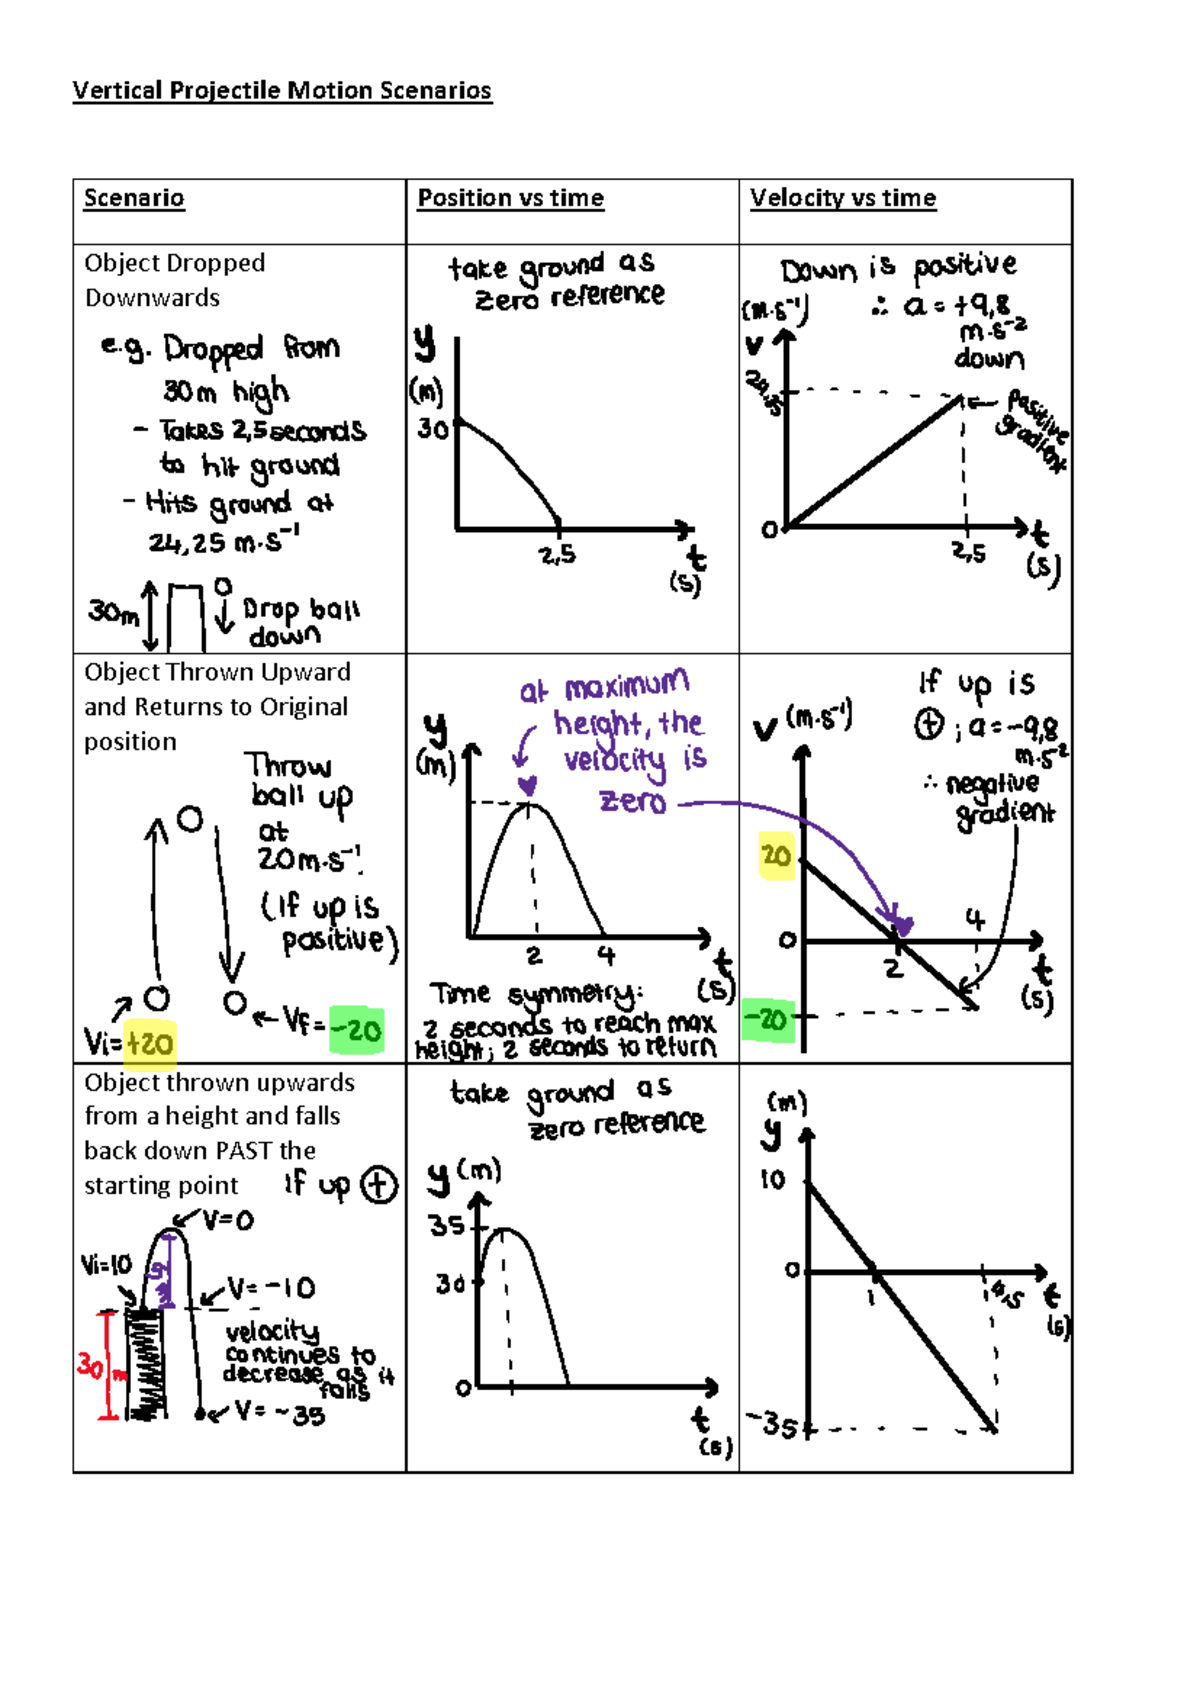 Vertical Projectile Motion Scenarios
Scenario
Position vs time
Velocity vs time
Object Dropped
Downwards
e.g. Dropped from
30m high
- Takes 2,5 seconds
to hit ground
- Hits ground at
24,25 m·s⁻¹
30m
Drop ball
down
take ground as
zero reference
y
(m)
30
2,5
t
(s)
Down is positive
(m·s⁻¹)
∴ a = +9,8
m·s⁻²
down
v
24,25
positive
gradient
0
2,5
t
(s)
Object Thrown Upward
and Returns to Original
position
Throw
ball up
at
20m·s⁻¹.
(If up is
positive)
Vi= +20
Vf = -20
at maximum
height, the
velocity is
zero
y
(m)
2
4
t
(s)
Time symmetry:
2 seconds to reach max
height; 2 seconds to return
If up is
⊕ ; a = -9,8
m·s⁻²
∴ negative
gradient
v (m·s⁻¹)
20
0
2
4
t
(s)
-20
Object thrown upwards
from a height and falls
back down PAST the
starting point
If up ⊕
V=0
Vi=10
V= -10
velocity
continues to
decrease as it
falls
30 m
V= -35
take ground as
zero reference
y (m)
35
30
0
t
(s)
(m)
y
10
0
1
4,5
t
(s)
-35